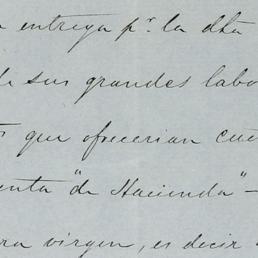 entrega p.r la dha
de sus grandes labo
que ofrecerian cue
enta "de Hacienda" -
ra virgen, es decir